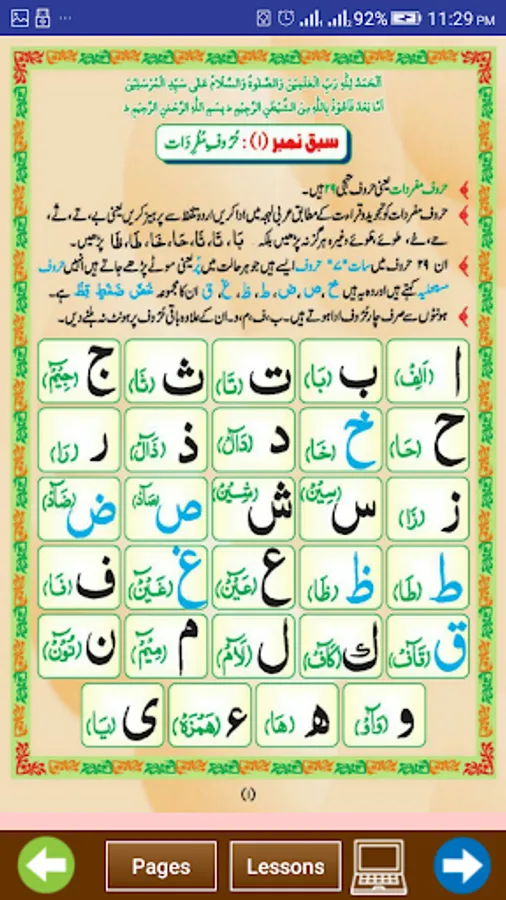 92% 11:29 PM
اَلْحَمْدُ لِلّٰهِ رَبِّ الْعٰلَمِيْنَ وَالصَّلٰوةُ وَالسَّلَامُ عَلٰى سَيِّدِ الْمُرْسَلِيْنَ
اَمَّا بَعْدُ فَاَعُوْذُ بِاللّٰهِ مِنَ الشَّيْطٰنِ الرَّجِيْمِ ط بِسْمِ اللّٰهِ الرَّحْمٰنِ الرَّحِيْمِ ط
سبق نمبر (۱) : حُرُوفِ مُفْرِدَات
حروف مفردات یعنی حروف تہجی ۲۹ ہیں۔
حروف مفردات کو تجوید و قراءت کے مطابق عربی لہجہ میں ادا کریں اردو تلفظ سے پرہیز کریں یعنی بے، تے، ثے،
حے، طے، طوئے، ظوئے وغیرہ ہرگز نہ پڑھیں بلکہ بَا، تَا، ثَا، حَا، خَا، طَا، ظَا پڑھیں۔
ان ۲۹ حروف میں سات "۷" حروف ایسے ہیں جو ہر حالت میں پُر یعنی موٹے پڑھے جاتے ہیں انہیں حروف
مستعلیہ کہتے ہیں اور وہ یہ ہیں خ، ص، ض، ط، ظ، غ، ق ان کا مجموعہ خُصَّ ضَغْطٍ قِظْ ہے۔
ہونٹوں سے صرف چار حُرُوف ادا ہوتے ہیں۔ ب، ف، م، و۔ ان کے علاوہ باقی حُرُوف پر ہونٹ نہ ہلنے دیں۔
ا (اَلِفْ) ب (بَا) ت (تَا) ث (ثَا) ج (جِيْمْ)
ح (حَا) خ (خَا) د (دَالْ) ذ (ذَالْ) ر (رَا)
ز (زَا) س (سِيْنْ) ش (شِيْنْ) ص (صَادْ) ض (ضَادْ)
ط (طَا) ظ (ظَا) ع (عَيْنْ) غ (غَيْنْ) ف (فَا)
ق (قَافْ) ك (كَافْ) ل (لَامْ) م (مِيْمْ) ن (نُوْنْ)
و (وَاوْ) ه (هَا) ء (هَمْزَهْ) ى (يَا)
(۱)
Pages Lessons